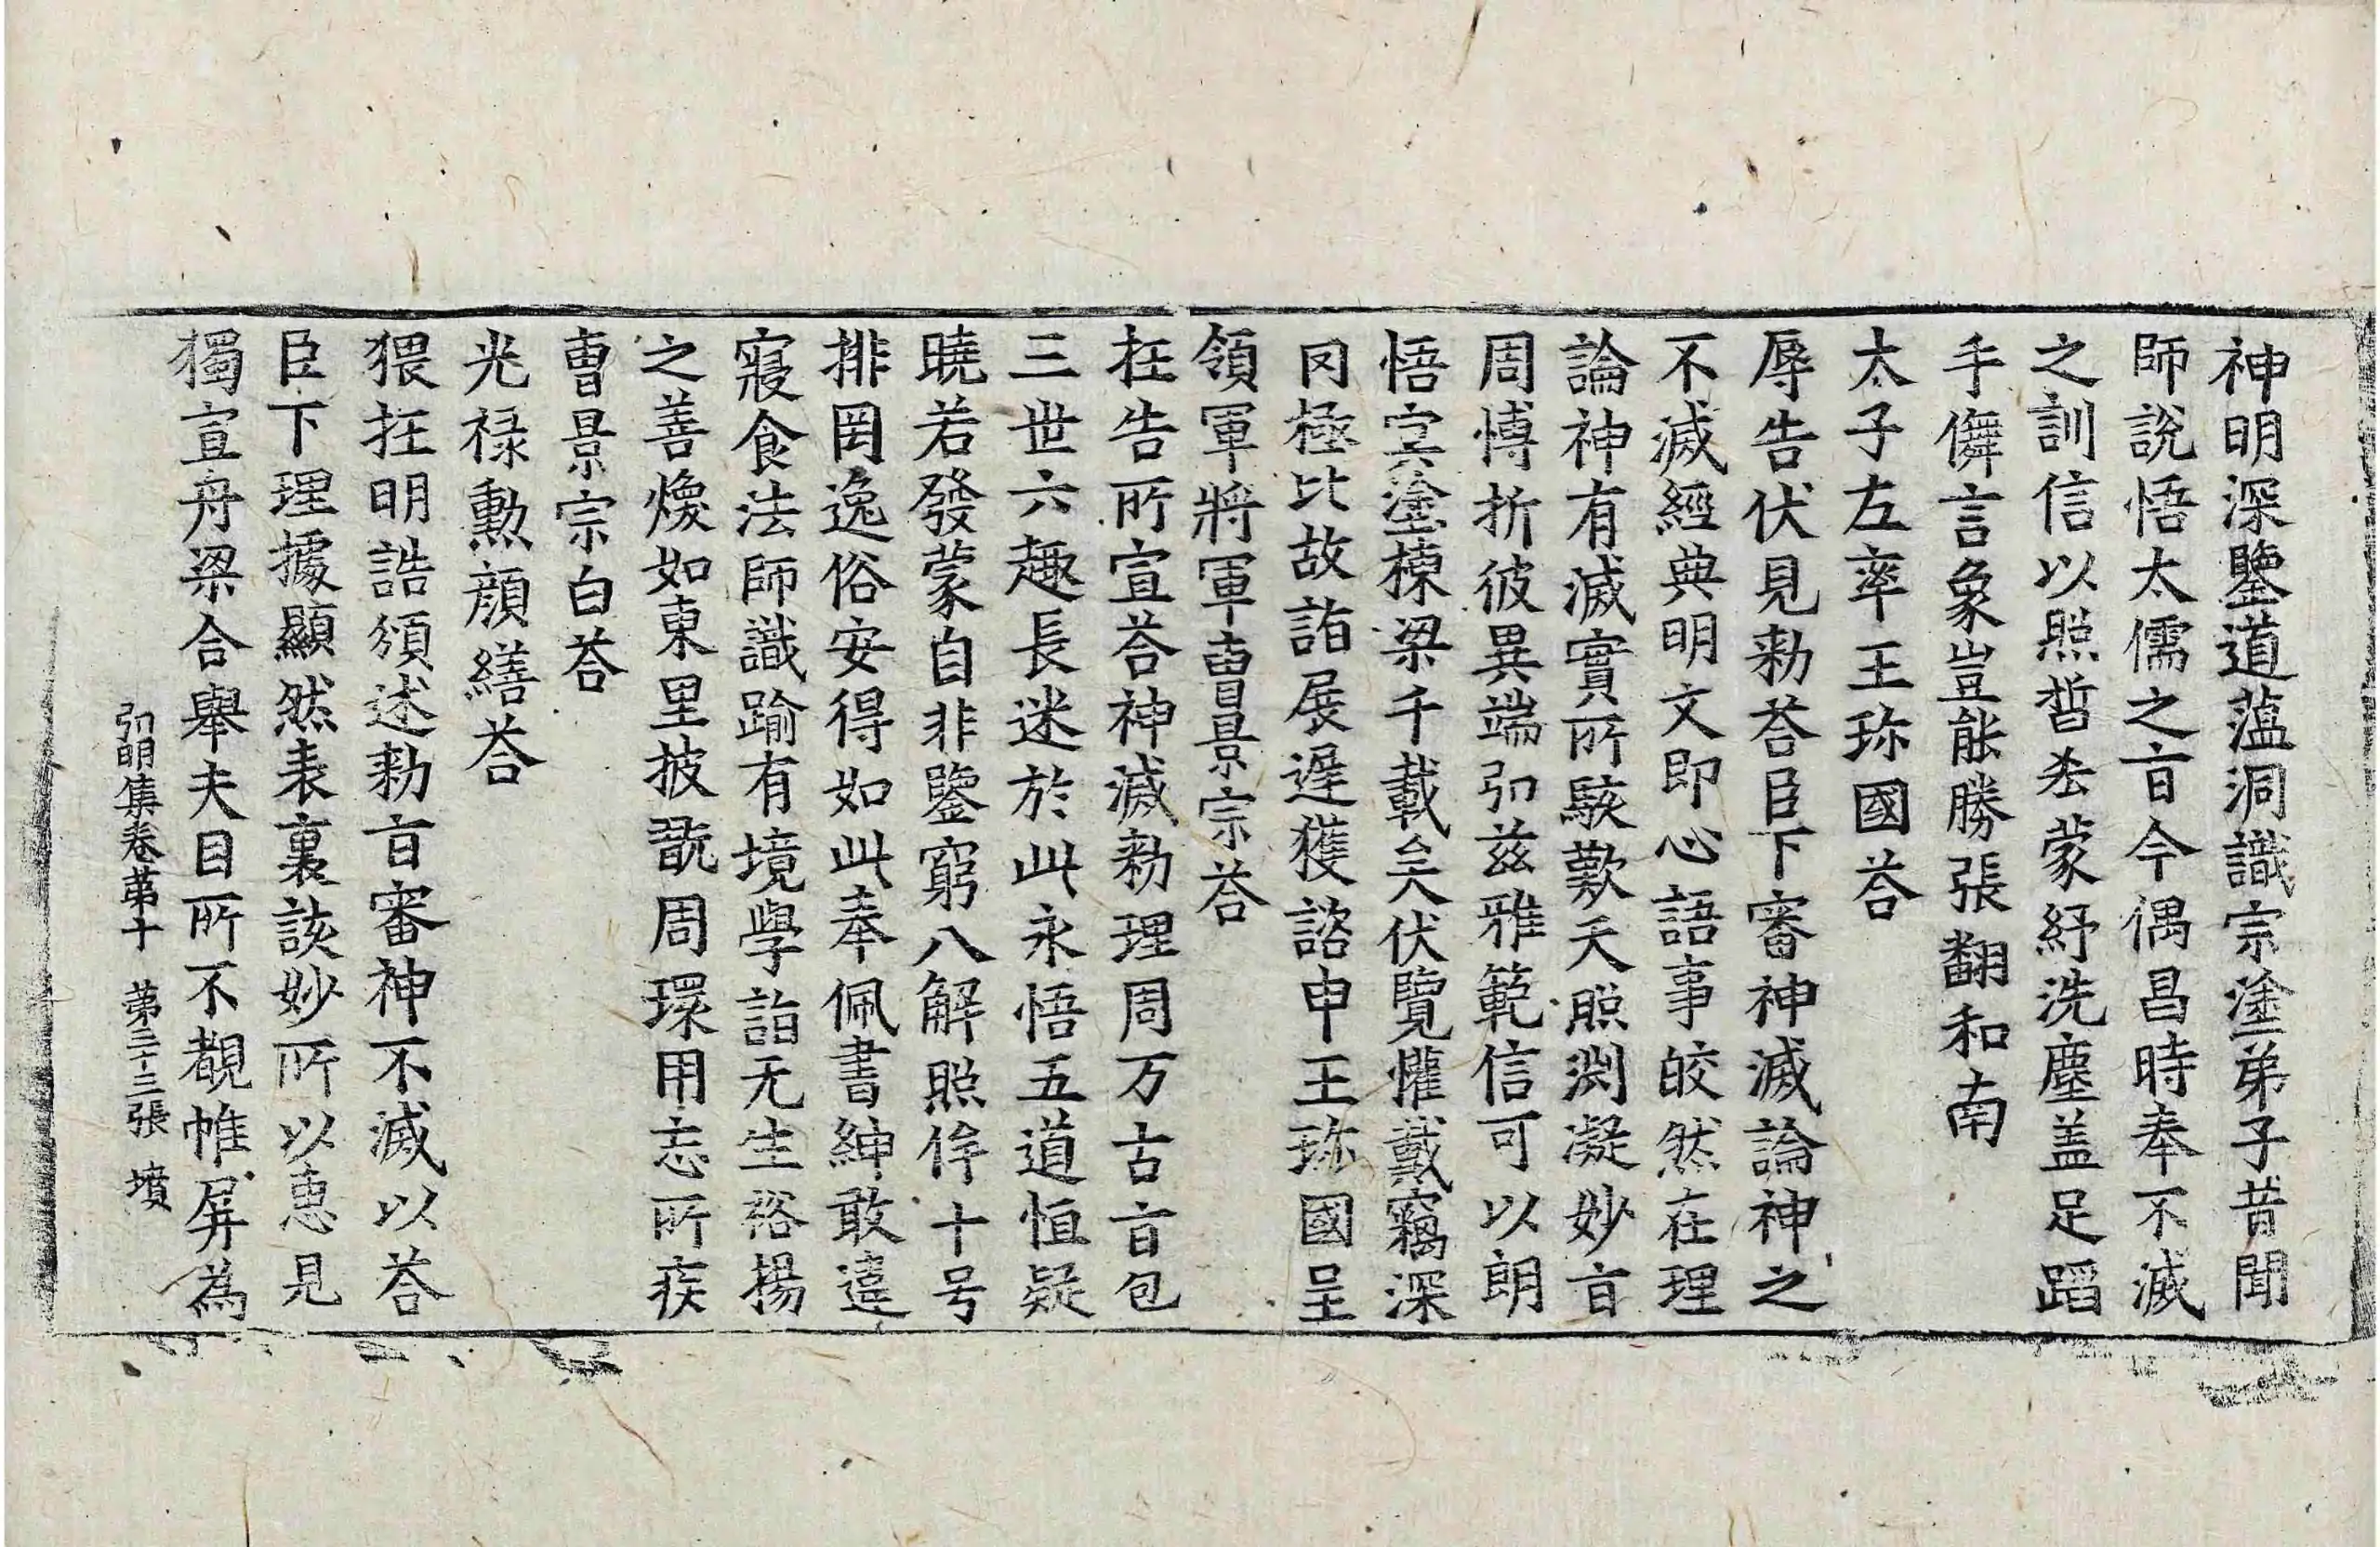 神明深鑒道蘊洞識宗塗弟子昔聞
師說悟太儒之㫖今偶昌時奉不滅
之訓信以照晢㳒蒙紓洗塵盖足蹈
手儛言象豈能勝張翻和南
太子左率王珎國荅
辱告伏見勑荅臣下審神滅論神之
不滅經典明文即心語事皎然在理
論神有滅實所駭歎天照渕凝妙㫖
周博折彼異端弘兹雅範信可以朗
悟冥塗棟梁千載矣伏覽懽戴竊深
罔極比故詣展遲獲諮申王珎國呈
領軍將軍曺景宗荅
抂告所宣荅神滅勑理周万古㫖包
三世六趣長迷於此永悟五道恒疑
曉若發蒙自非鑒窮八解照侔十号
排罔逸俗安得如此奉佩書紳敢違
寢食法師識踰有境學詣无生裕揚
之善煥如東里披翫周環用忘所疾
曺景宗白荅
光禄勲顔繕荅
猥抂明誥頒述勑㫖審神不滅以荅
臣下理據顯然表裏該妙所以惠見
獨宣舟梁合舉夫目所不覩帷屏為
弘明集卷苐十　苐三十三張　墳